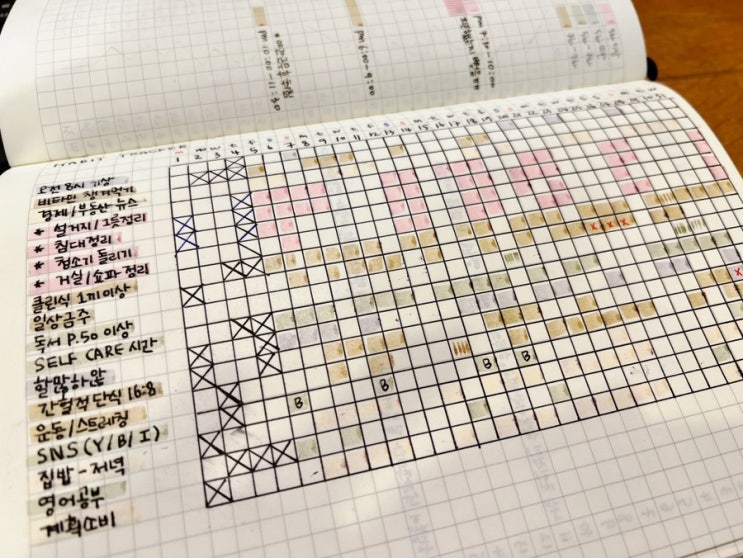 HABIT TRACKER
1 2 3 4 5 6 7 8 9 10 11 12 13 14 15 16 17 18 19 20 21 22 23 24 25 26 27 28 29 30 31
오전 8시 기상
비타민 챙겨먹기
경제/부동산 뉴스
* 설거지/그릇정리
* 침대정리
* 청소기 돌리기
* 거실/쇼파 정리
클린식 1끼이상
일상금주
독서 P.50 이상
SELF CARE 시간
할많하않
간헐적단식 16:8
운동/스트레칭
SNS (Y/B/I)
집밥-저녁
영어공부
계획소비
B
B
B
B
pm 10:00-11:30
pm 6:00-9:00
pm 7:30-10:00